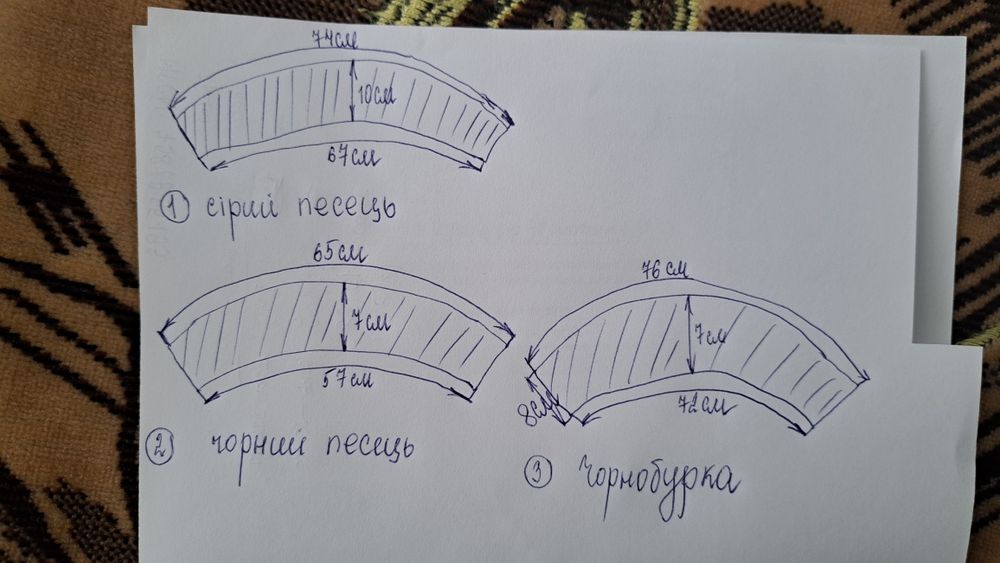 74см
10см
67см
1 сірий песець
65см
7см
57см
2 чорний песець
76 см
7см
8см
72см
3 Чорнобурка